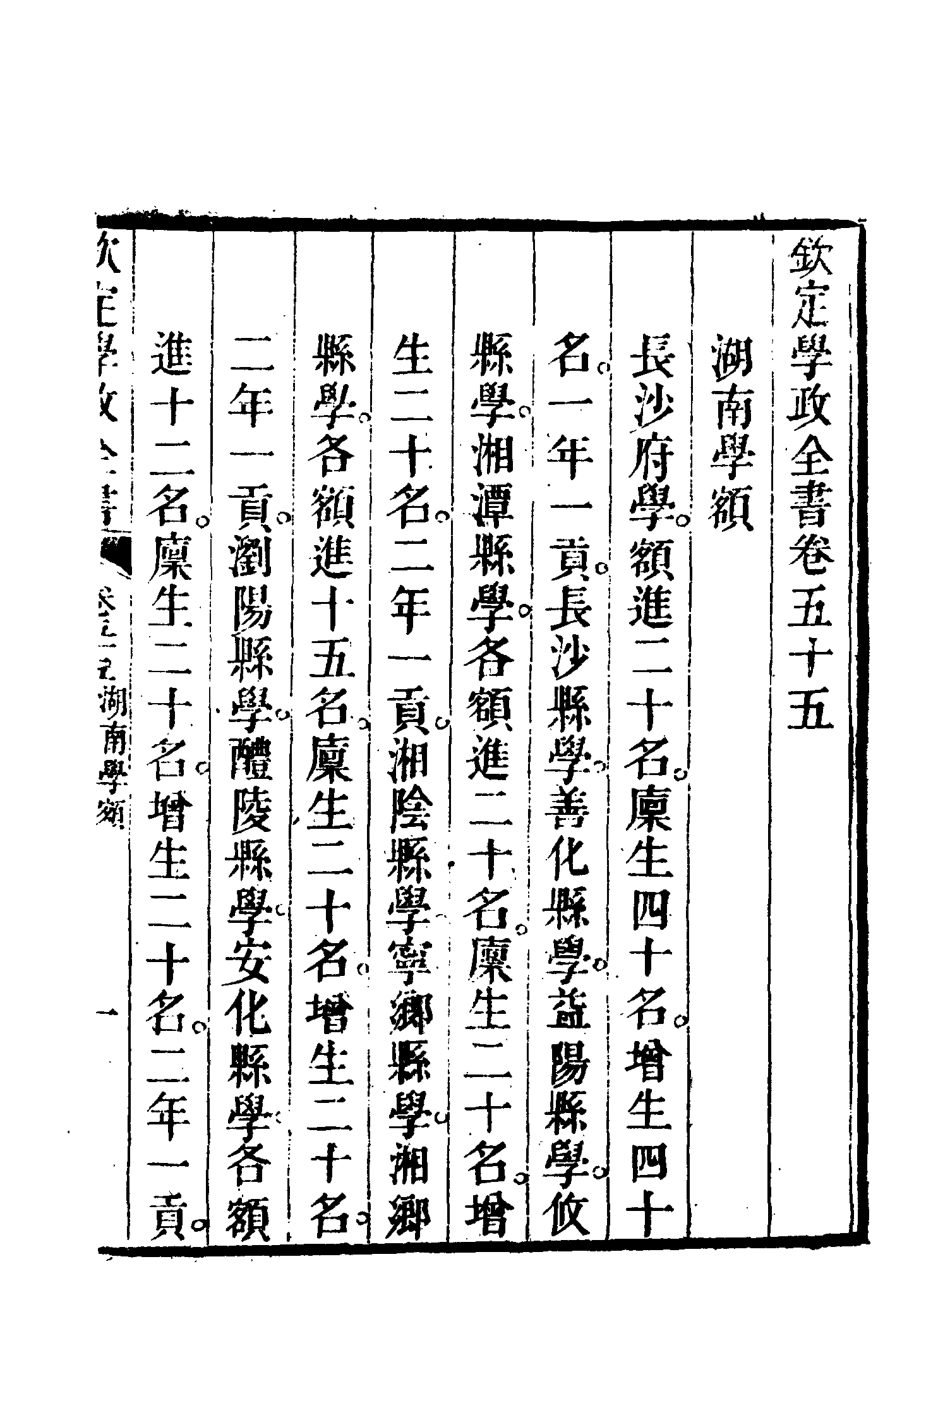 欽定學政全書卷五十五
湖南學額
長沙府學。額進二十名。廩生四十名。增生四十
名。一年一貢。長沙縣學。善化縣學。益陽縣學。攸
縣學。湘潭縣學。各額進二十名。廩生二十名。增
生二十名。二年一貢。湘陰縣學。寧鄉縣學。湘鄉
縣學。各額進十五名。廩生二十名。增生二十名。
二年一貢。瀏陽縣學。醴陵縣學。安化縣學。各額
進十二名。廩生二十名。增生二十名。二年一貢。
欽定學政全書 卷五十五 湖南學額 一